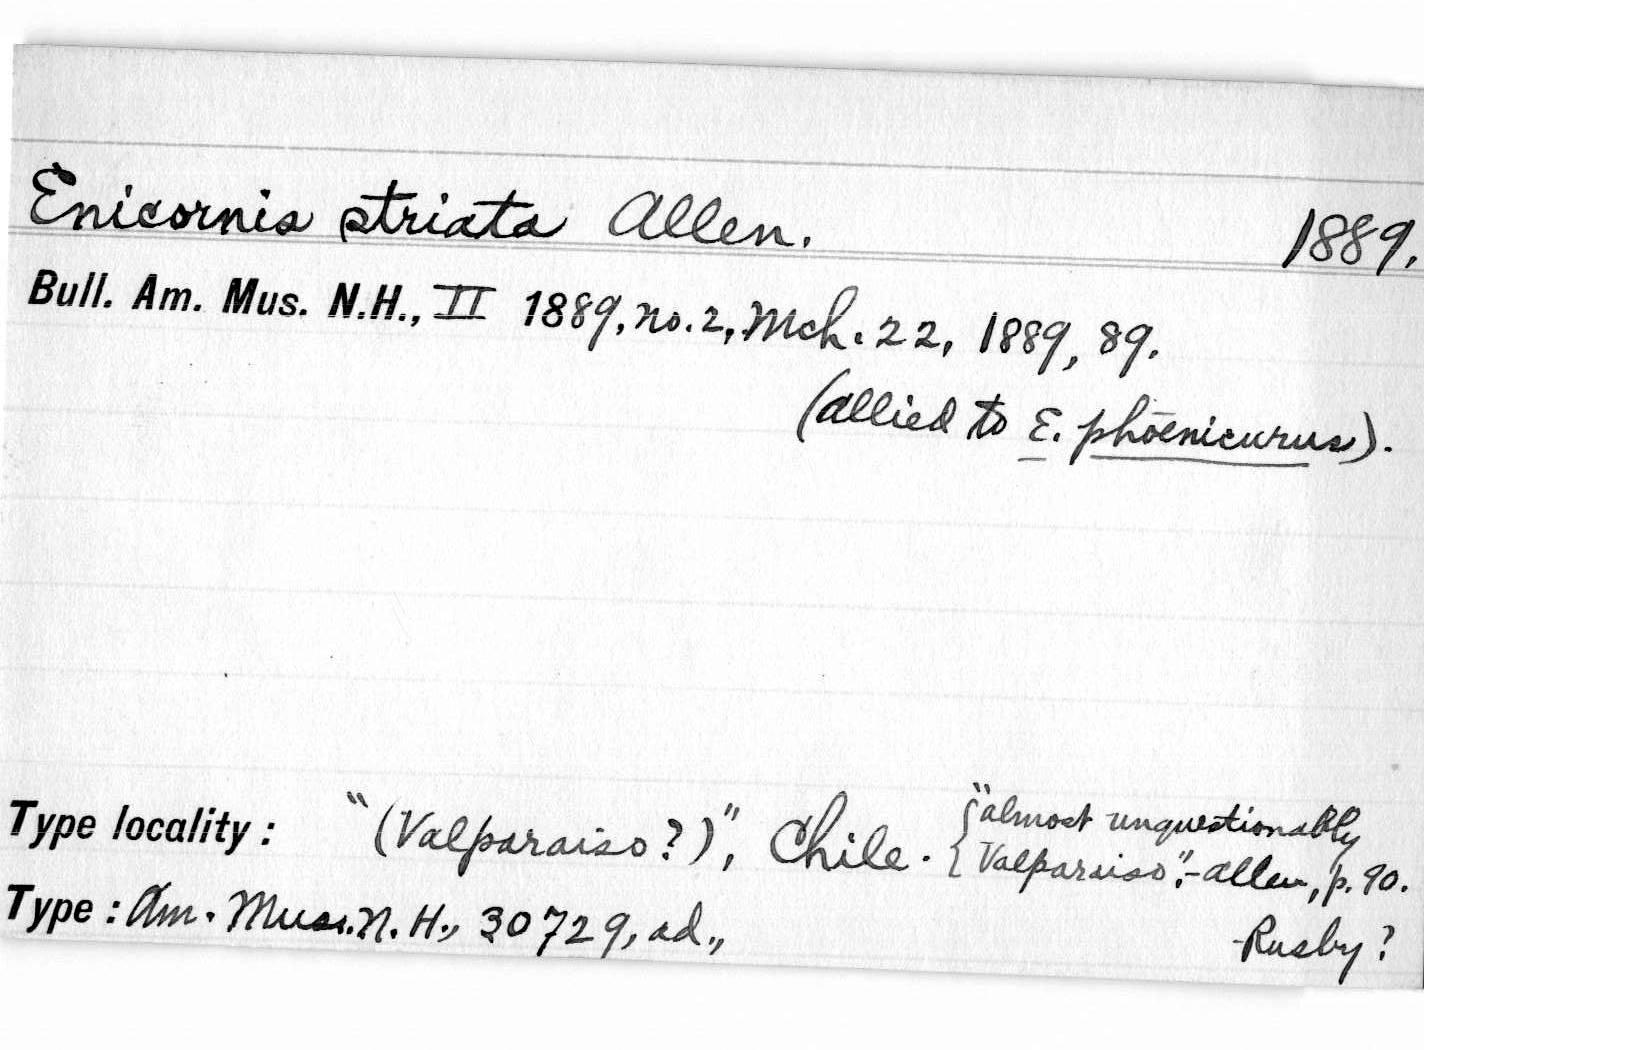 Enicornis striata Allen. 1889.
Bull. Am. Mus. N.H., II 1889, no. 2, Mch. 22, 1889, 89.
(allied to E. phoenicurus).
Type locality: "(Valparaiso?)", Chile. {"almost unquestionably
Valparaiso", - Allen, p. 90.
Type: Am. Mus. N. H., 30729, ad.,
Rusby?